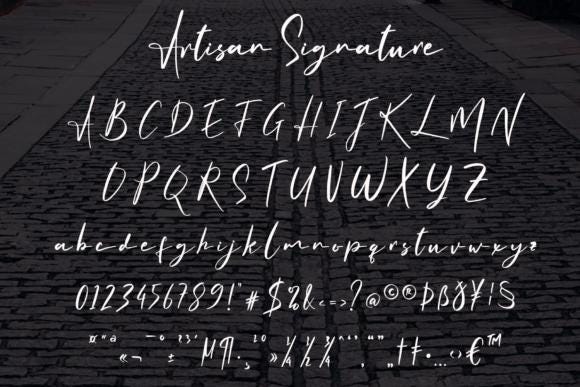 Artisan Signature
ABCDEFGHIJKLMN
OPQRSTUVWXYZ
abcdefghijklmnopqrstuvwxyz
0123456789!"#$%&<=>?@©®Þß¥¡§
¤"ª -º ²³' ¹º ^`'' “”
«¬ ± µ¶·¸ »¼½¾ „†‡•…‹›€™